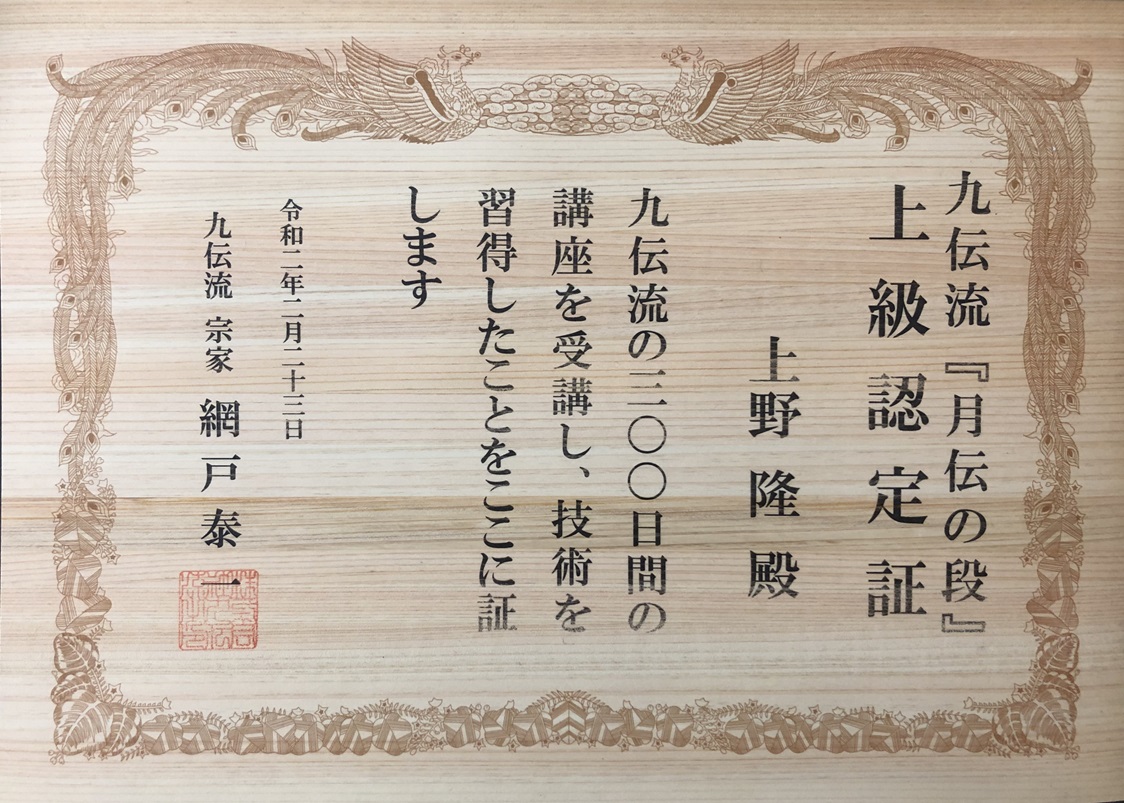 九伝流『月伝の段』
上級認定証
上野 隆 殿
九伝流の三〇〇日間の
講座を受講し、技術を
習得したことをここに証
します
令和二年二月二十三日
九伝流 宗家 網戸泰一